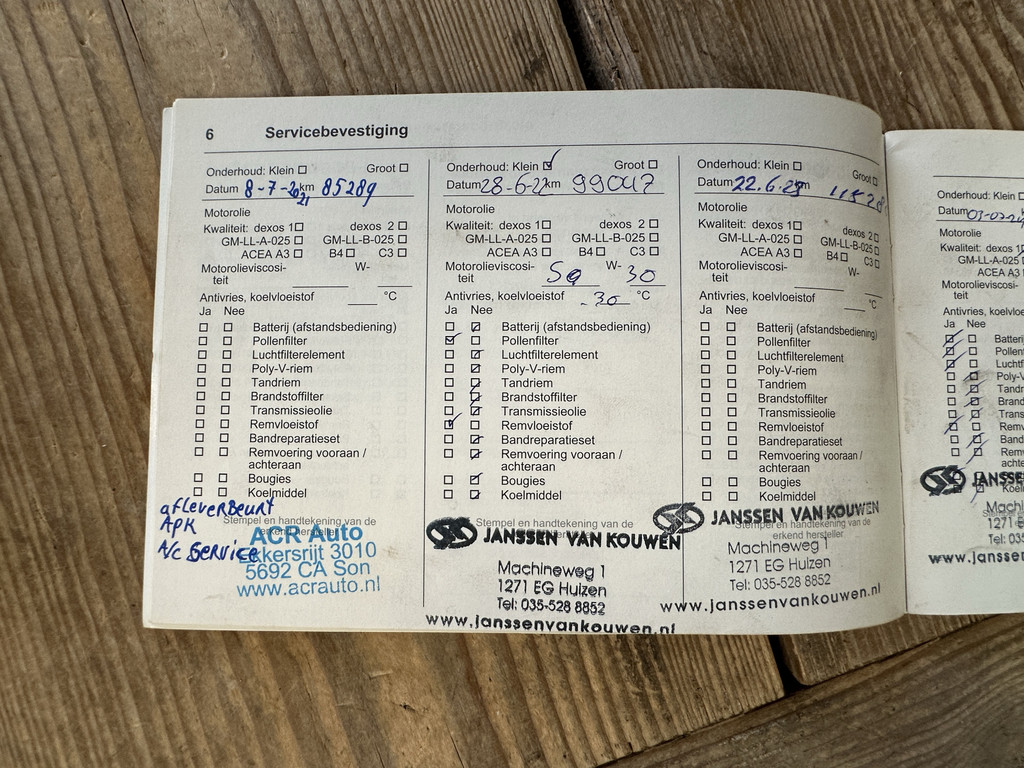 6 Servicebevestiging
Onderhoud: Klein Groot
Datum 8-7-2021 km 85289
Motorolie
Kwaliteit: dexos 1 dexos 2
GM-LL-A-025 GM-LL-B-025
ACEA A3 B4 C3
Motorolieviscosi- W-
teit
Antivries, koelvloeistof °C
Ja Nee
Batterij (afstandsbediening)
Pollenfilter
Luchtfilterelement
Poly-V-riem
Tandriem
Brandstoffilter
Transmissieolie
Remvloeistof
Bandreparatieset
Remvoering vooraan /
achteraan
Bougies
Koelmiddel
afleverBeurt
APK
A/c Service
Stempel en handtekening van de
erkend hersteller
ACR Auto
Ekkersrijt 3010
5692 CA Son
www.acrauto.nl
Onderhoud: Klein Groot
Datum 28-6-22 km 99047
Motorolie
Kwaliteit: dexos 1 dexos 2
GM-LL-A-025 GM-LL-B-025
ACEA A3 B4 C3
Motorolieviscosi- W- 30
teit
Antivries, koelvloeistof -30 °C
Ja Nee
Batterij (afstandsbediening)
Pollenfilter
Luchtfilterelement
Poly-V-riem
Tandriem
Brandstoffilter
Transmissieolie
Remvloeistof
Bandreparatieset
Remvoering vooraan /
achteraan
Bougies
Koelmiddel
Stempel en handtekening van de
JANSSEN VAN KOUWEN
Machineweg 1
1271 EG Huizen
Tel: 035-528 8852
www.janssenvankouwen.nl
Onderhoud: Klein Groot
Datum 22.6. km
Motorolie
Kwaliteit: dexos 1 dexos 2
GM-LL-A-025 GM-LL-B-025
ACEA A3 B4 C3
Motorolieviscosi- W-
teit
Antivries, koelvloeistof °C
Ja Nee
Batterij (afstandsbediening)
Pollenfilter
Luchtfilterelement
Poly-V-riem
Tandriem
Brandstoffilter
Transmissieolie
Remvloeistof
Bandreparatieset
Remvoering vooraan /
achteraan
Bougies
Koelmiddel
Stempel en handtekening van de
erkend hersteller
JANSSEN VAN KOUWEN
Machineweg 1
1271 EG Huizen
Tel: 035-528 8852
www.janssenvankouwen.nl
Onderhoud: Klein
Datum
Motorolie
Kwaliteit: dexos 1
GM-LL-A-025
ACEA A3
Motorolieviscosi-
teit
Antivries, koelvloe
Ja Nee
Batter
Pollen
Luchtf
Poly-V
Tandr
Brand
Trans
Remv
Band
Remv
achte
Bougi
Koel
JANSSEN
Machi
1271 E
Tel: 03
www.janssen